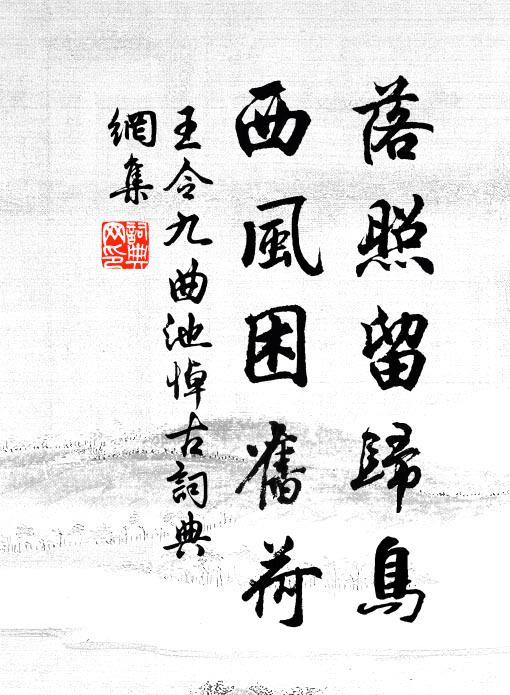 落照留歸鳥
西風困舊荷
王令九曲池悼古詞典
網集
詞典網印